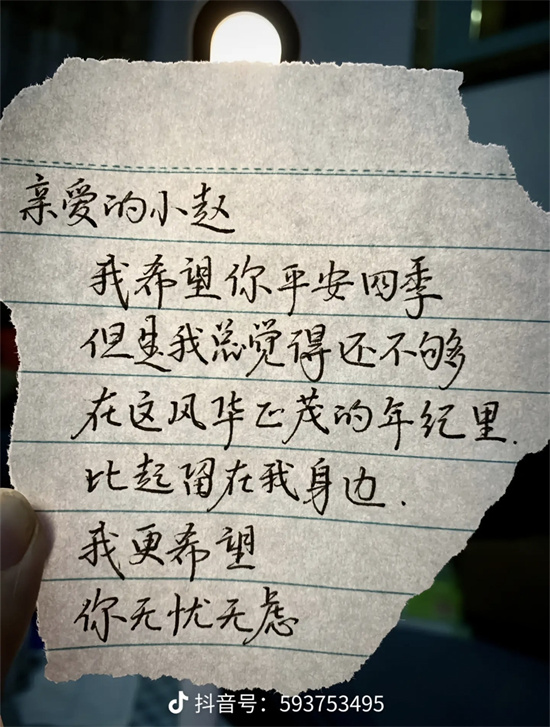 亲爱的小赵
我希望你平安四季
但是我总觉得还不够
在这风华正茂的年纪里.
比起留在我身边.
我更希望
你无忧无虑
抖音号：593753495